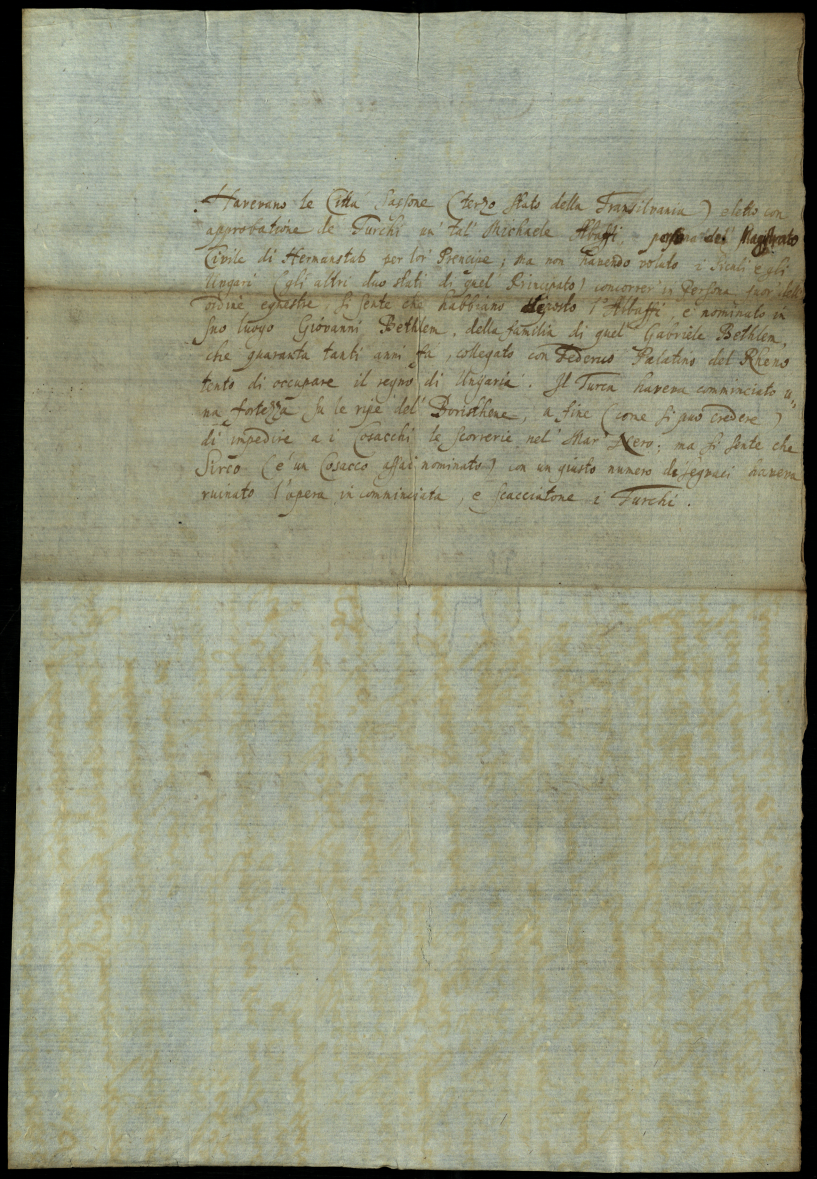 Haverano le Città Sassone (terzo stato della Transilvania) eletto con
approbatione de Turchi un tal' Michaele Abaffi, persona del Magistrato
Civile di Hermanstat per lor' Prencipe; ma non havendo voluto i Siculi e gli
Ungari (gli altri duo stati di quel' Principato) concorrer' in persona fuor' dell'
ordine equestre, si sente che habbiano deposto l'Abaffi, e nominato in
suo luogo Giovanni Bethlem, della familia di quel' Gabriele Bethlem,
che quaranta tanti anni fa, collegato con Federico Palatino del Rheno
tentò di occupare il regno di Ungaria. Il Turca haveva comminciato u„
na fortezza su le ripe del' Boristhene, a fine (come si può credere)
di impedire a i Cosacchi le scorrerie nel' Mar' Nero; ma si sente che
Sirco (è un Cosacco assai nominato) con un giusto numero di seguaci haveva
ruinato l'opera incomminciata, e scacciatone i Turchi.